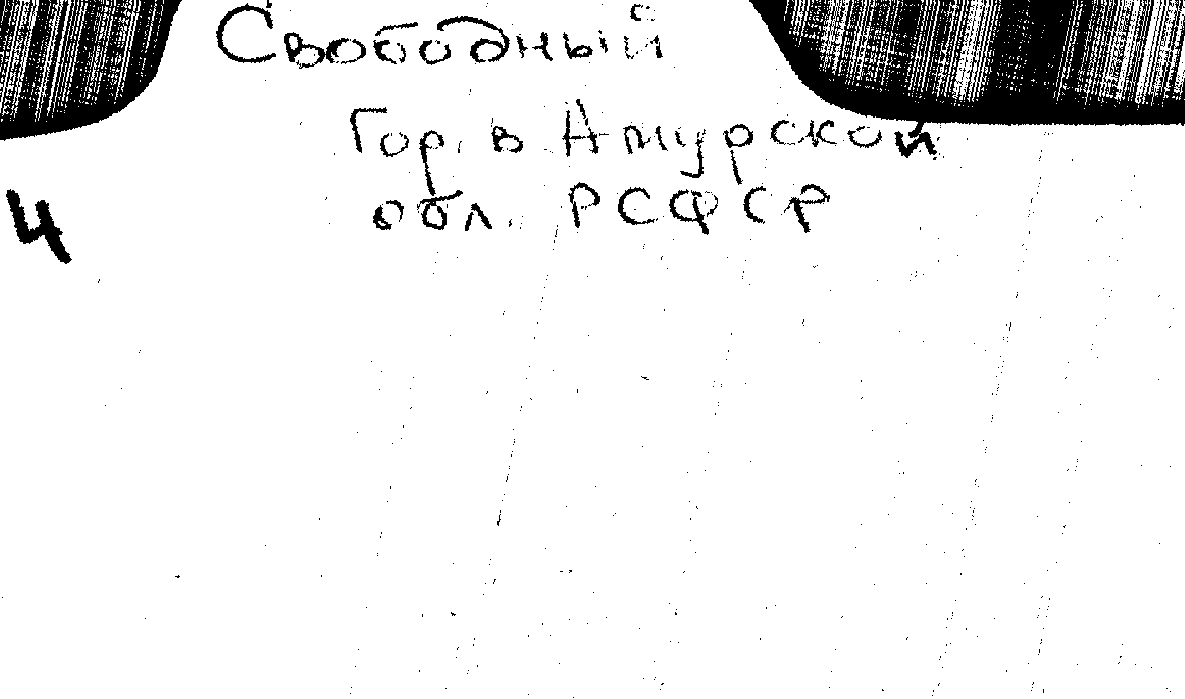 Свободный
Гор. в Амурской
4
обл. РСФСР